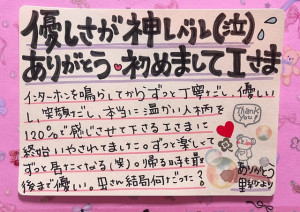 優しさが神レベル(泣)
ありがとう♥初めましてIさま
インターホンを鳴らしてからずっと丁寧だし、優しい
し、笑顔だし、本当に温かい人柄を
120%で感じさせて下さるIさまに
終始いやされてました。ずっと楽しくて
ずっと居たくなる(笑)り帰る時も最
後まで優しい。
Thank You!
ありがとう
より